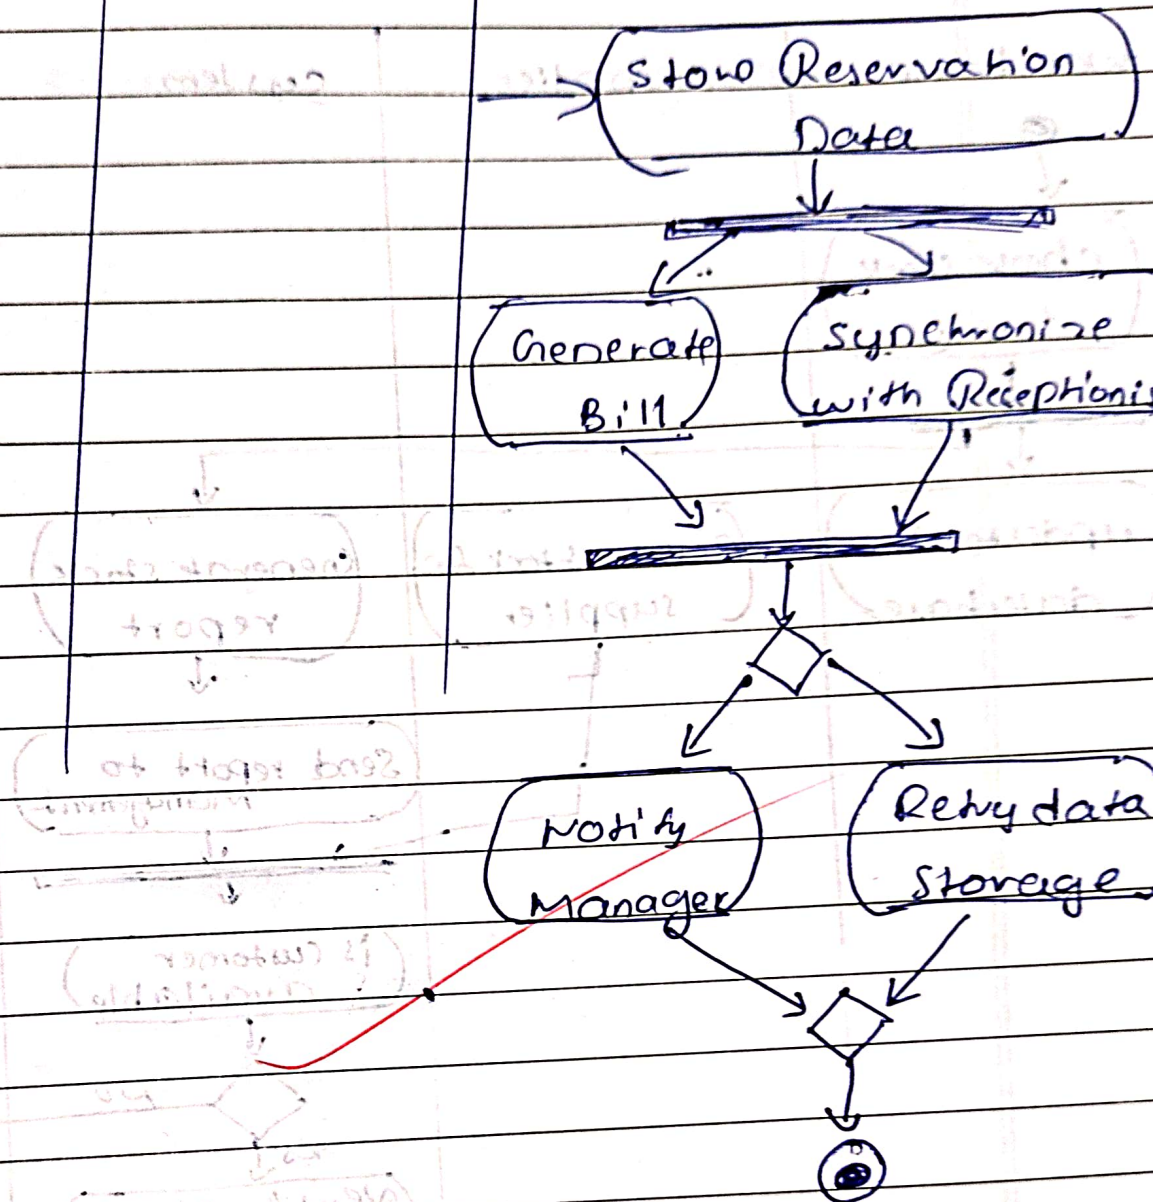 Store Reservation
Data
Generate
Bill
Synchronize
with Receptionis
Notify
Manager
Retry data
Storage